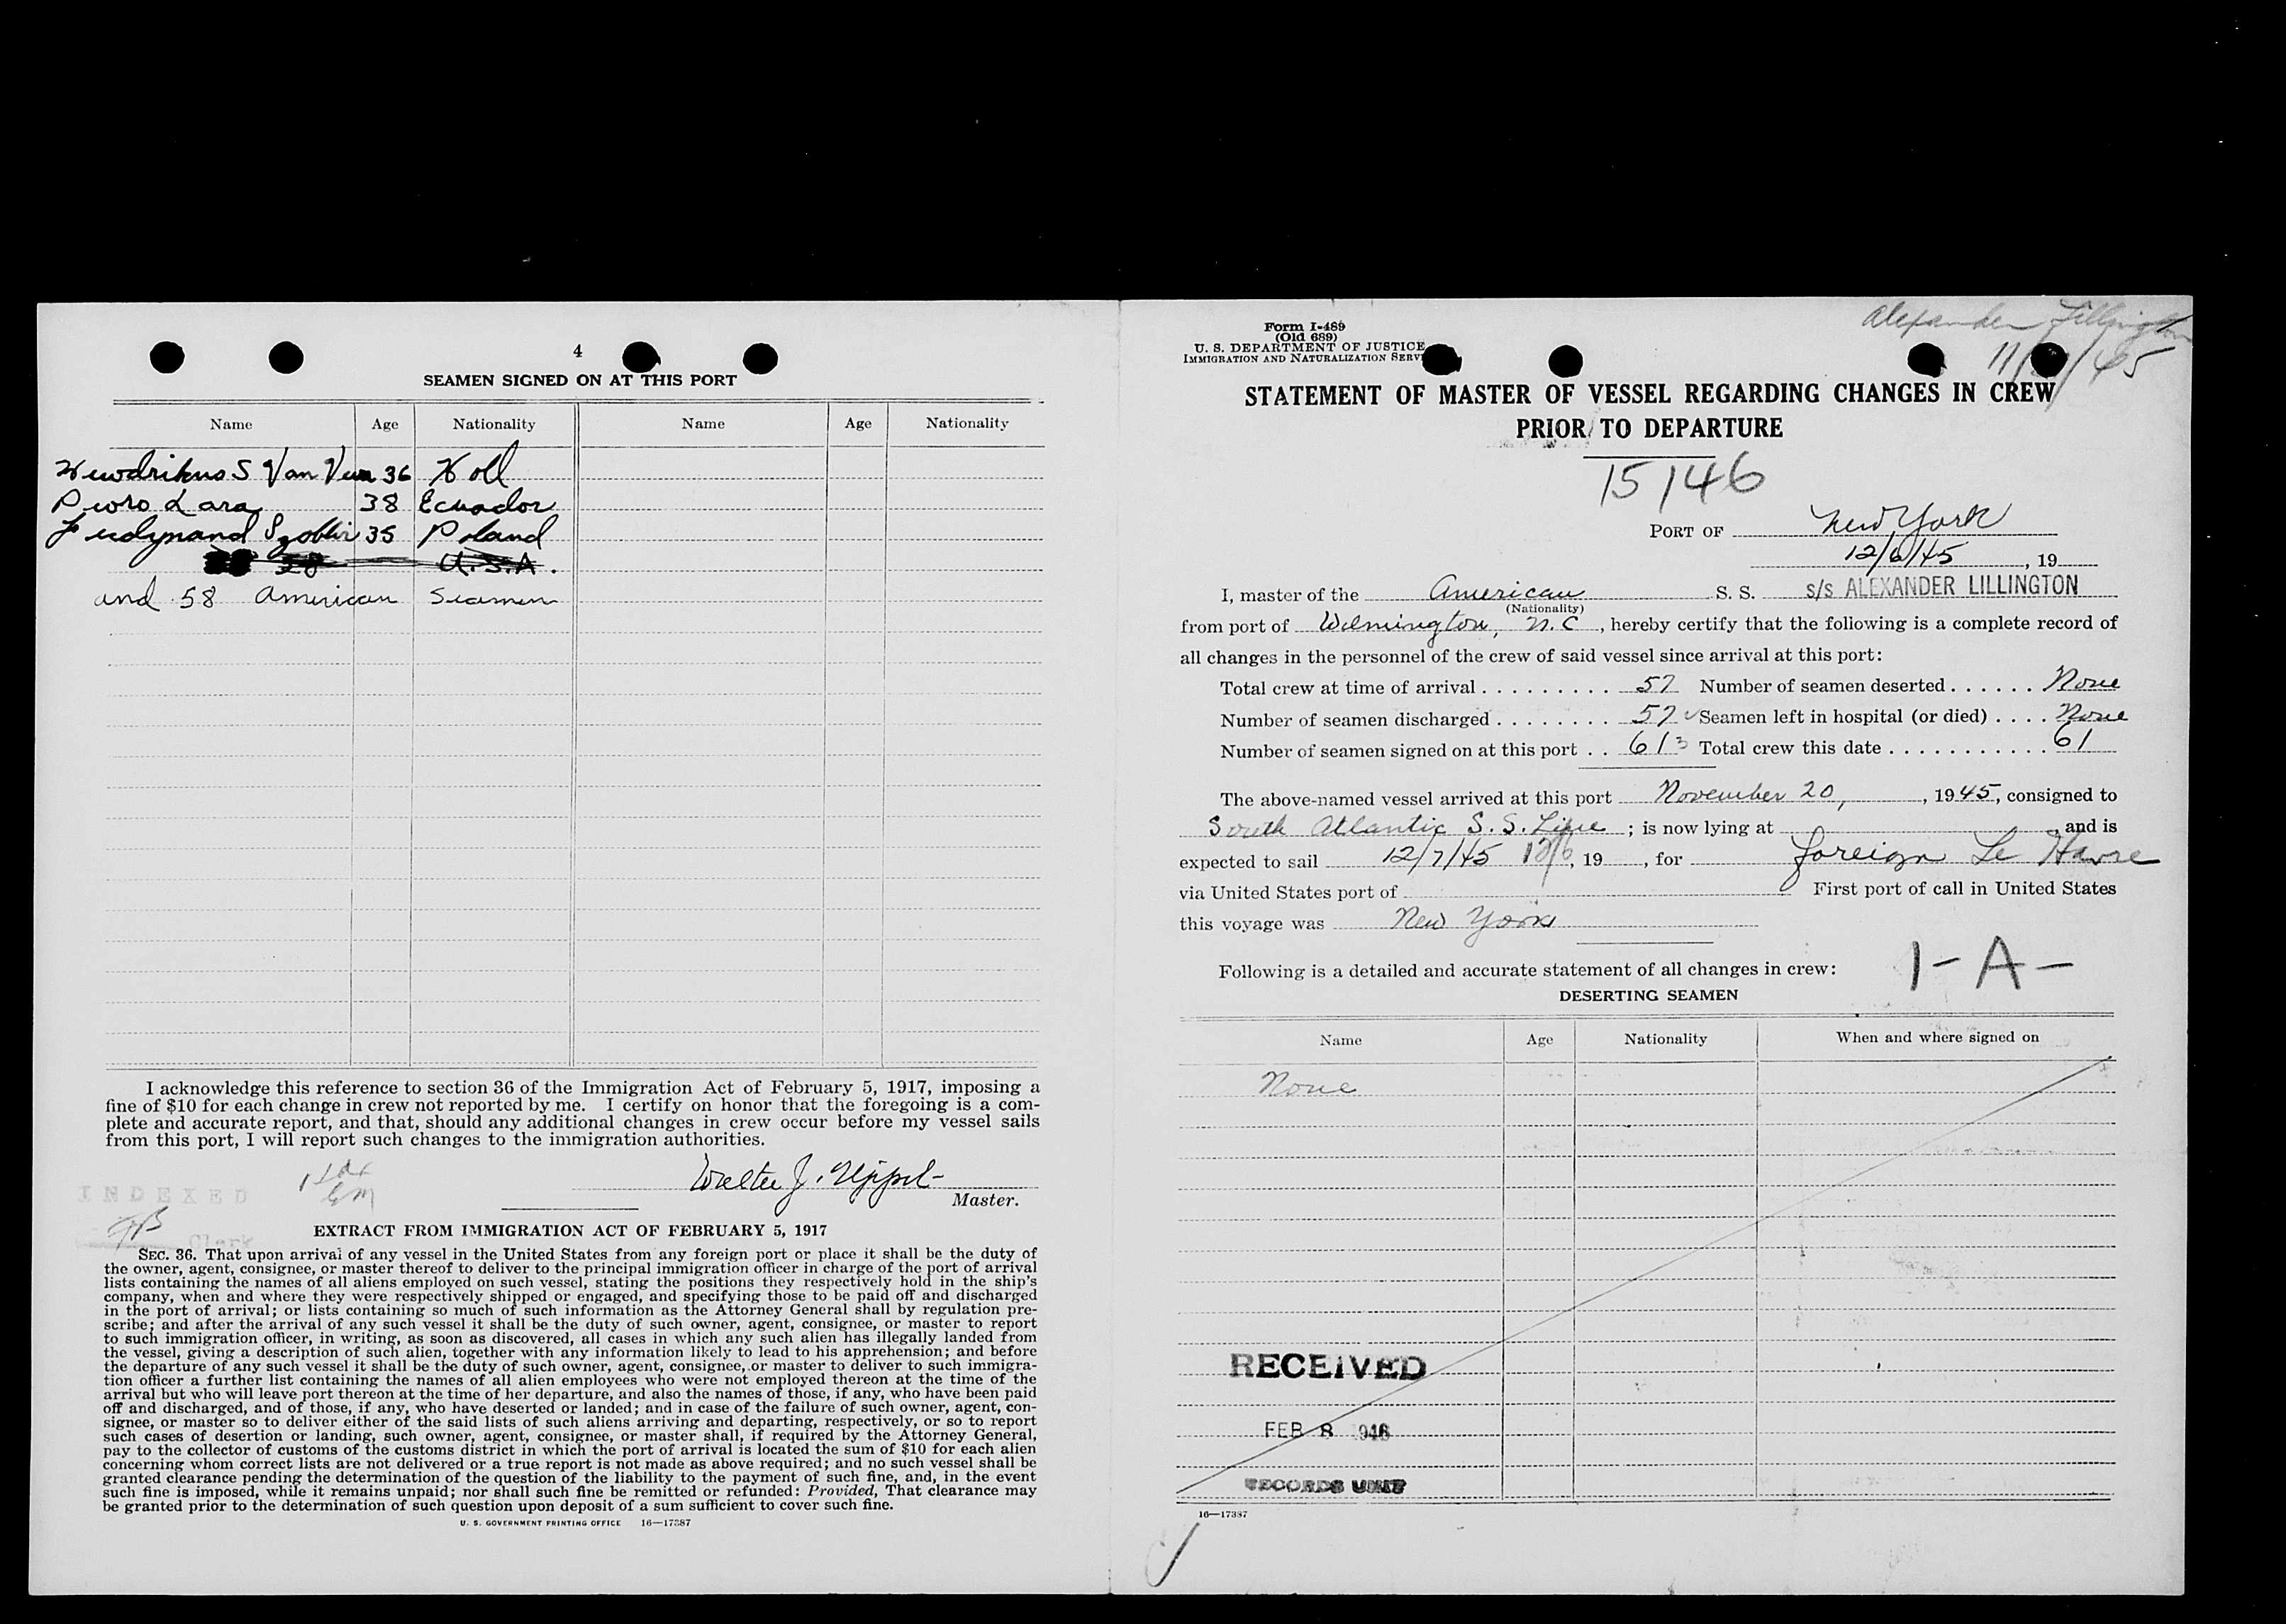 4
SEAMEN SIGNED ON AT THIS PORT
Name Age Nationality Name Age Nationality
S Van 36 Holl
Lara 38 Ecuador
Ferdynand 35 Poland
28 U.S.A.
and 58 American Seamen
I acknowledge this reference to section 36 of the Immigration Act of February 5, 1917, imposing a
fine of $10 for each change in crew not reported by me. I certify on honor that the foregoing is a com-
plete and accurate report, and that, should any additional changes in crew occur before my vessel sails
from this port, I will report such changes to the immigration authorities.
INDEXED
Walter J.
Master.
Clerk
EXTRACT FROM IMMIGRATION ACT OF FEBRUARY 5, 1917
SEC. 36. That upon arrival of any vessel in the United States from any foreign port or place it shall be the duty of
the owner, agent, consignee, or master thereof to deliver to the principal immigration officer in charge of the port of arrival
lists containing the names of all aliens employed on such vessel, stating the positions they respectively hold in the ship's
company, when and where they were respectively shipped or engaged, and specifying those to be paid off and discharged
in the port of arrival; or lists containing so much of such information as the Attorney General shall by regulation pre-
scribe; and after the arrival of any such vessel it shall be the duty of such owner, agent, consignee, or master to report
to such immigration officer, in writing, as soon as discovered, all cases in which any such alien has illegally landed from
the vessel, giving a description of such alien, together with any information likely to lead to his apprehension; and before
the departure of any such vessel it shall be the duty of such owner, agent, consignee, or master to deliver to such immigra-
tion officer a further list containing the names of all alien employees who were not employed thereon at the time of the
arrival but who will leave port thereon at the time of her departure, and also the names of those, if any, who have been paid
off and discharged, and of those, if any, who have deserted or landed; and in case of the failure of such owner, agent, con-
signee, or master so to deliver either of the said lists of such aliens arriving and departing, respectively, or so to report
such cases of desertion or landing, such owner, agent, consignee, or master shall, if required by the Attorney General,
pay to the collector of customs of the customs district in which the port of arrival is located the sum of $10 for each alien
concerning whom correct lists are not delivered or a true report is not made as above required; and no such vessel shall be
granted clearance pending the determination of the question of the liability to the payment of such fine, and, in the event
such fine is imposed, while it remains unpaid; nor shall such fine be remitted or refunded: Provided, That clearance may
be granted prior to the determination of such question upon deposit of a sum sufficient to cover such fine.
U. S. GOVERNMENT PRINTING OFFICE 16—17387
Alexander Lillington
Form I-489
(Old 689)
U. S. DEPARTMENT OF JUSTICE
IMMIGRATION AND NATURALIZATION
STATEMENT OF MASTER OF VESSEL REGARDING CHANGES IN CREW
PRIOR TO DEPARTURE
15146
PORT OF New York
12/6/45, 19
I, master of the American S. S. s/s ALEXANDER LILLINGTON
(Nationality)
from port of Wilmington, N.C, hereby certify that the following is a complete record of
all changes in the personnel of the crew of said vessel since arrival at this port:
Total crew at time of arrival . . . . . . . . . 57 Number of seamen deserted . . . . . . None
Number of seamen discharged . . . . . . . . 57 Seamen left in hospital (or died) . . . . None
Number of seamen signed on at this port . . 61 3 Total crew this date . . . . . . . . . . . . 61
The above-named vessel arrived at this port November 20, , 1945, consigned to
South Atlantic S.S. Line ; is now lying at , and is
expected to sail 12/7/45 12/6, 19 , for foreign Le Havre
via United States port of First port of call in United States
this voyage was New York
Following is a detailed and accurate statement of all changes in crew: 1-A-
DESERTING SEAMEN
Name Age Nationality When and where signed on
None
RECEIVED
FEB 8 1946
RECORDS UNIT
16—17387